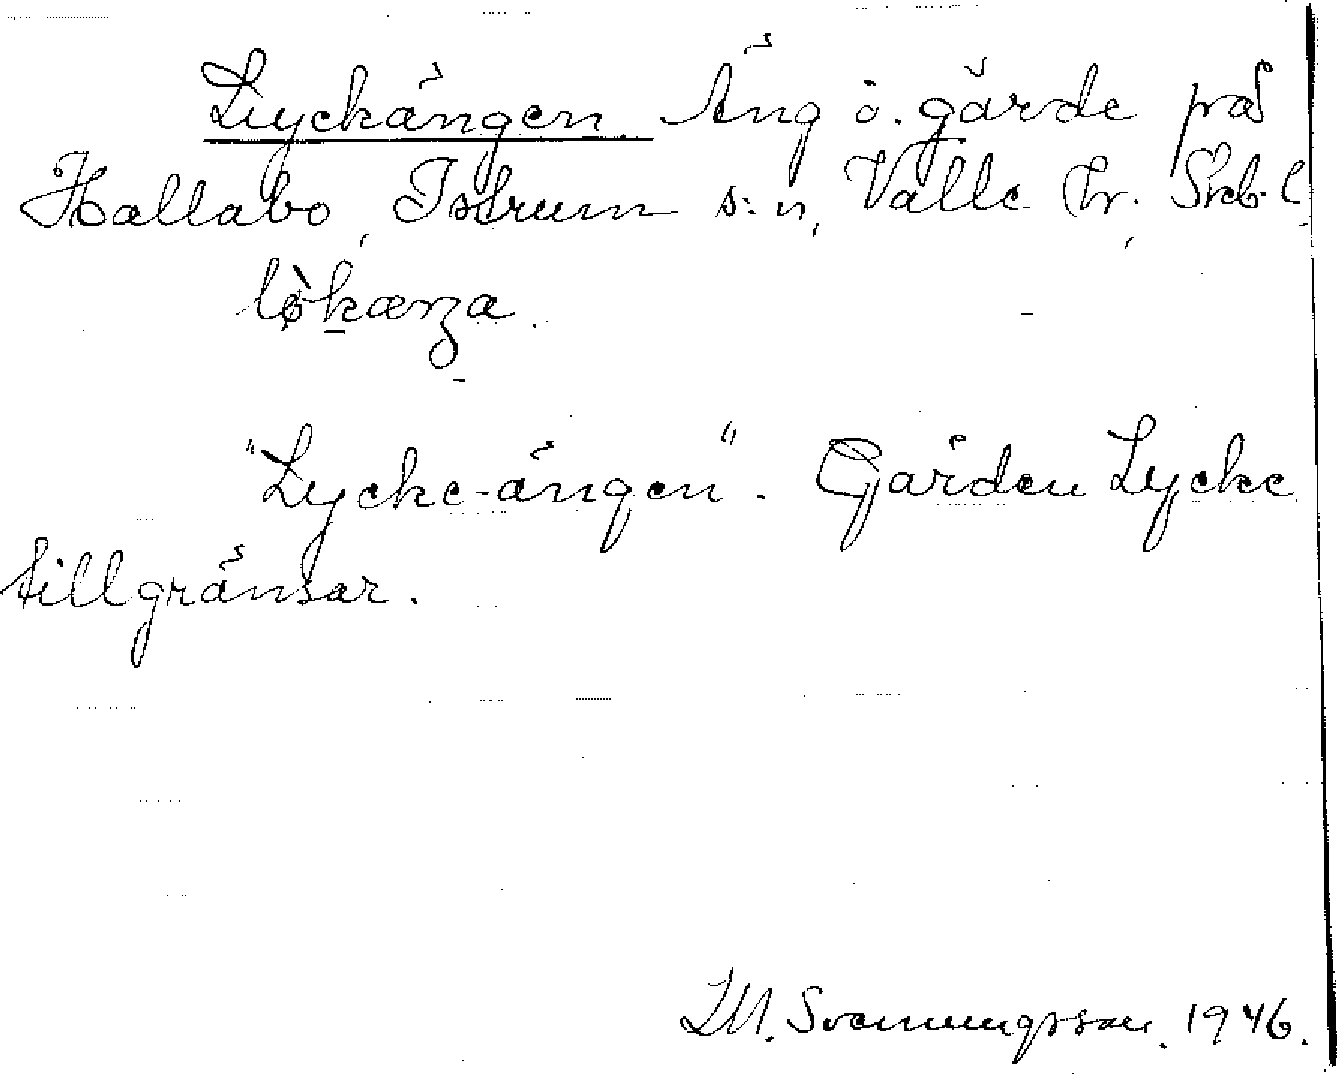 Lyckängen. Äng o. gärde på
Hallabo, Istrum s:n, Valle hr. Skrb. l.
lø̀kæŋa.
"Lycke-ängen". Gården Lycke
tillgränsar.
M. Svenungsson. 1946.